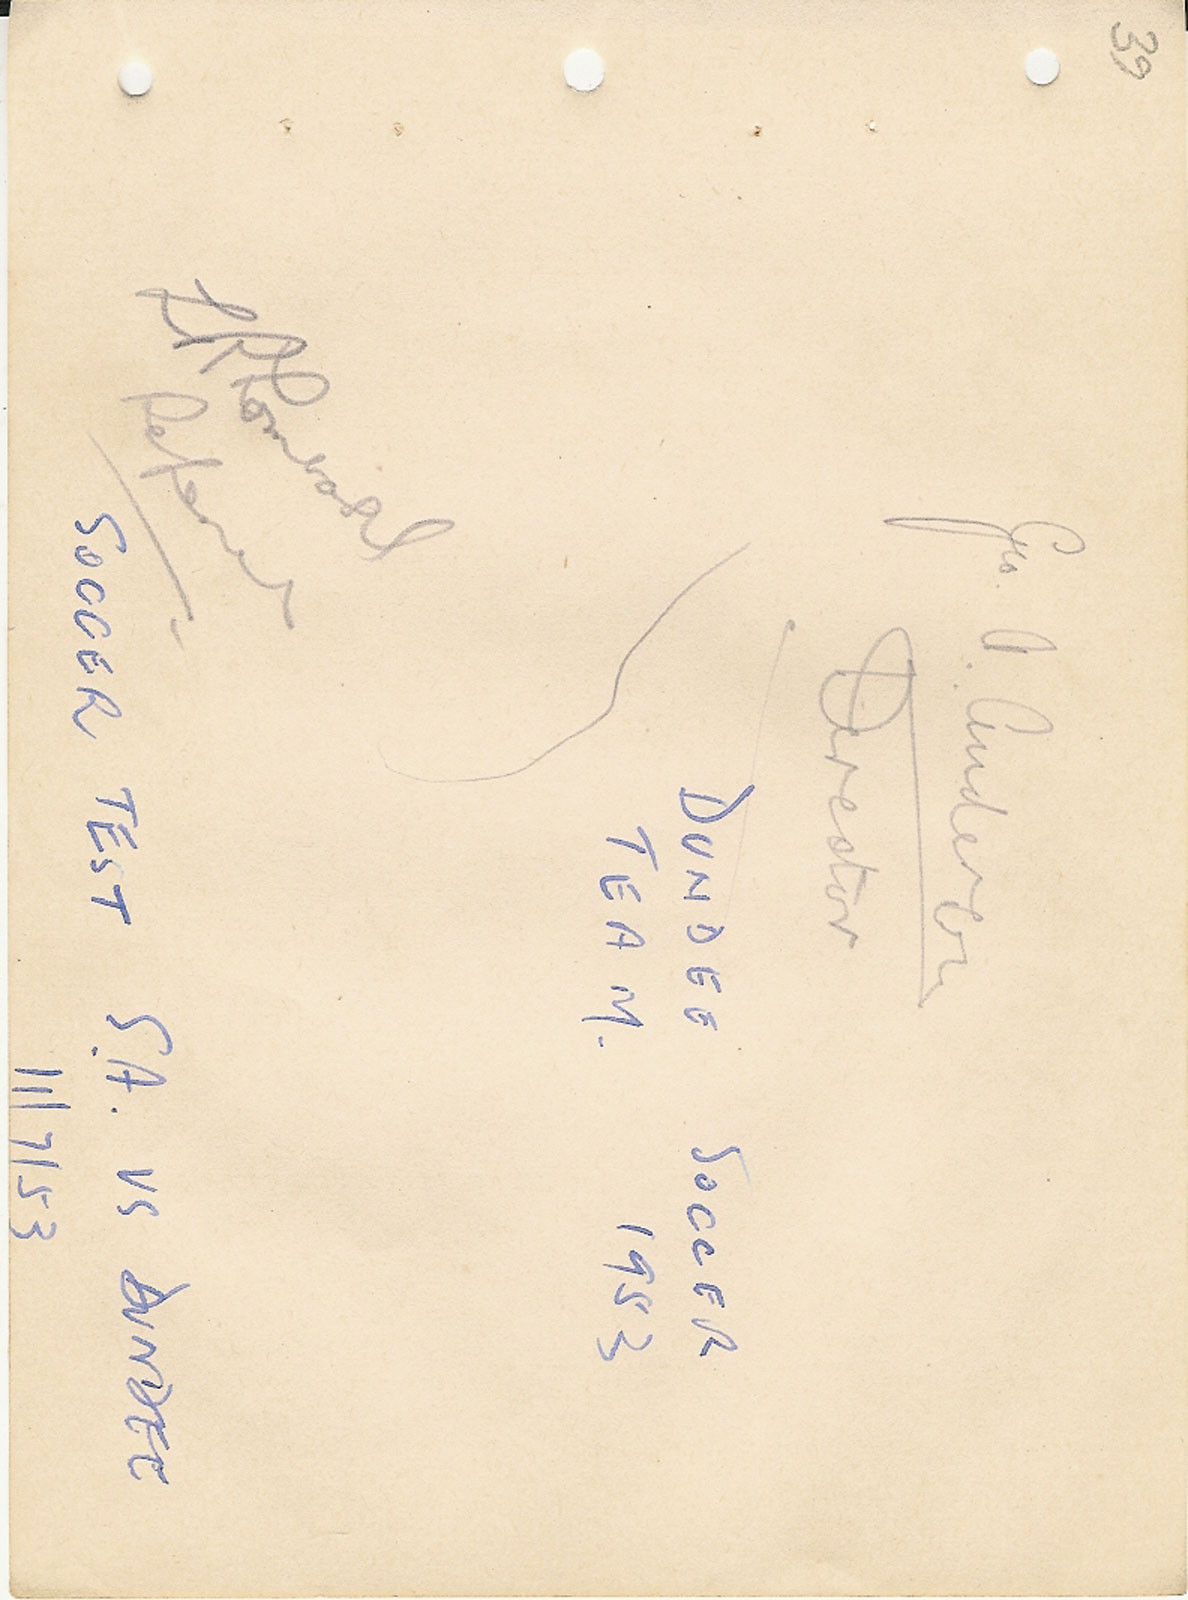 39
Geo. A. Anderson
Director
DUNDEE SOCCER
TEAM. 1953
Referee
SOCCER TEST S.A. VS DUNDEE
11/7/53